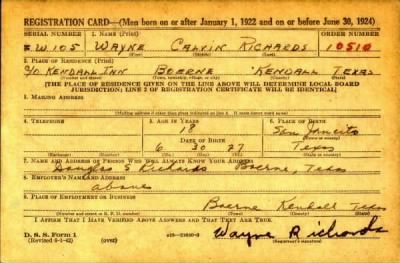 REGISTRATION CARD—(Men born on or after January 1, 1922 and on or before June 30, 1924)
SERIAL NUMBER 1. NAME (Print) ORDER NUMBER
W105 WAYNE CALVIN RICHARDS 10510
(First) (Middle) (Last)
2. PLACE OF RESIDENCE (Print)
C/O KENDALL INN BOERNE KENDALL TEXAS
[THE PLACE OF RESIDENCE GIVEN ON THE LINE ABOVE WILL DETERMINE LOCAL BOARD
JURISDICTION; LINE 2 OF REGISTRATION CERTIFICATE WILL BE IDENTICAL]
3. MAILING ADDRESS
4. TELEPHONE 5. AGE IN YEARS 6. PLACE OF BIRTH
18
DATE OF BIRTH
6 30 27 Texas
(Exchange) (Number) (Mo.) (Day) (Yr.) (State or country)
7. NAME AND ADDRESS OF PERSON WHO WILL ALWAYS KNOW YOUR ADDRESS
Douglas S Richards Boerne, Texas
8. EMPLOYER'S NAME AND ADDRESS
above
9. PLACE OF EMPLOYMENT OR BUSINESS
Boerne Kendall Texas
(Number and street or R. F. D. number) (Town) (County) (State)
I AFFIRM THAT I HAVE VERIFIED ABOVE ANSWERS AND THAT THEY ARE TRUE.
D. S. S. Form 1
(Revised 6-1-42) (over) Wayne Richards
(Registrant's signature)